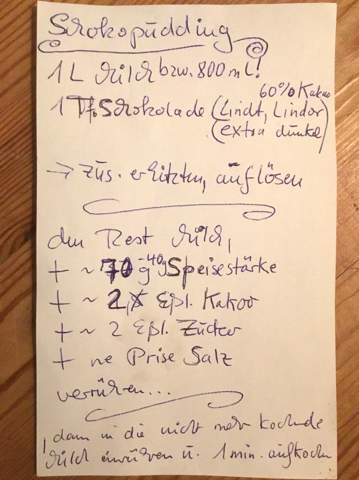 Schokopudding
1 L Milch bzw. 800 mL!
60% Kakao
1 Tf. Schokolade (Lindt, Lindor
(extra dunkel)
→ zus. erhitzen, auflösen
den Rest Milch,
+ ~ 70 g 40g Speisestärke
+ ~ 2 Eßl. Kakao
+ ~ 2 Eßl. Zucker
+ ne Prise Salz
verrühren...
, dann in die nicht mehr kochende
Milch einrühren u. 1 min. aufkochen